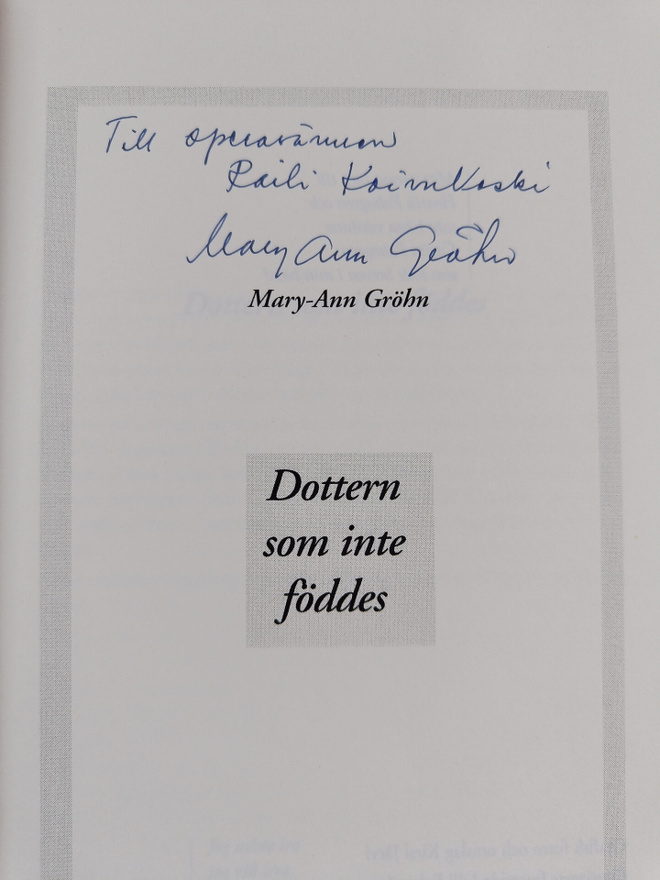 Till operavännen
Raili Koivukoski
Mary Ann Gröhn
Mary-Ann Gröhn
Dottern
som inte
föddes